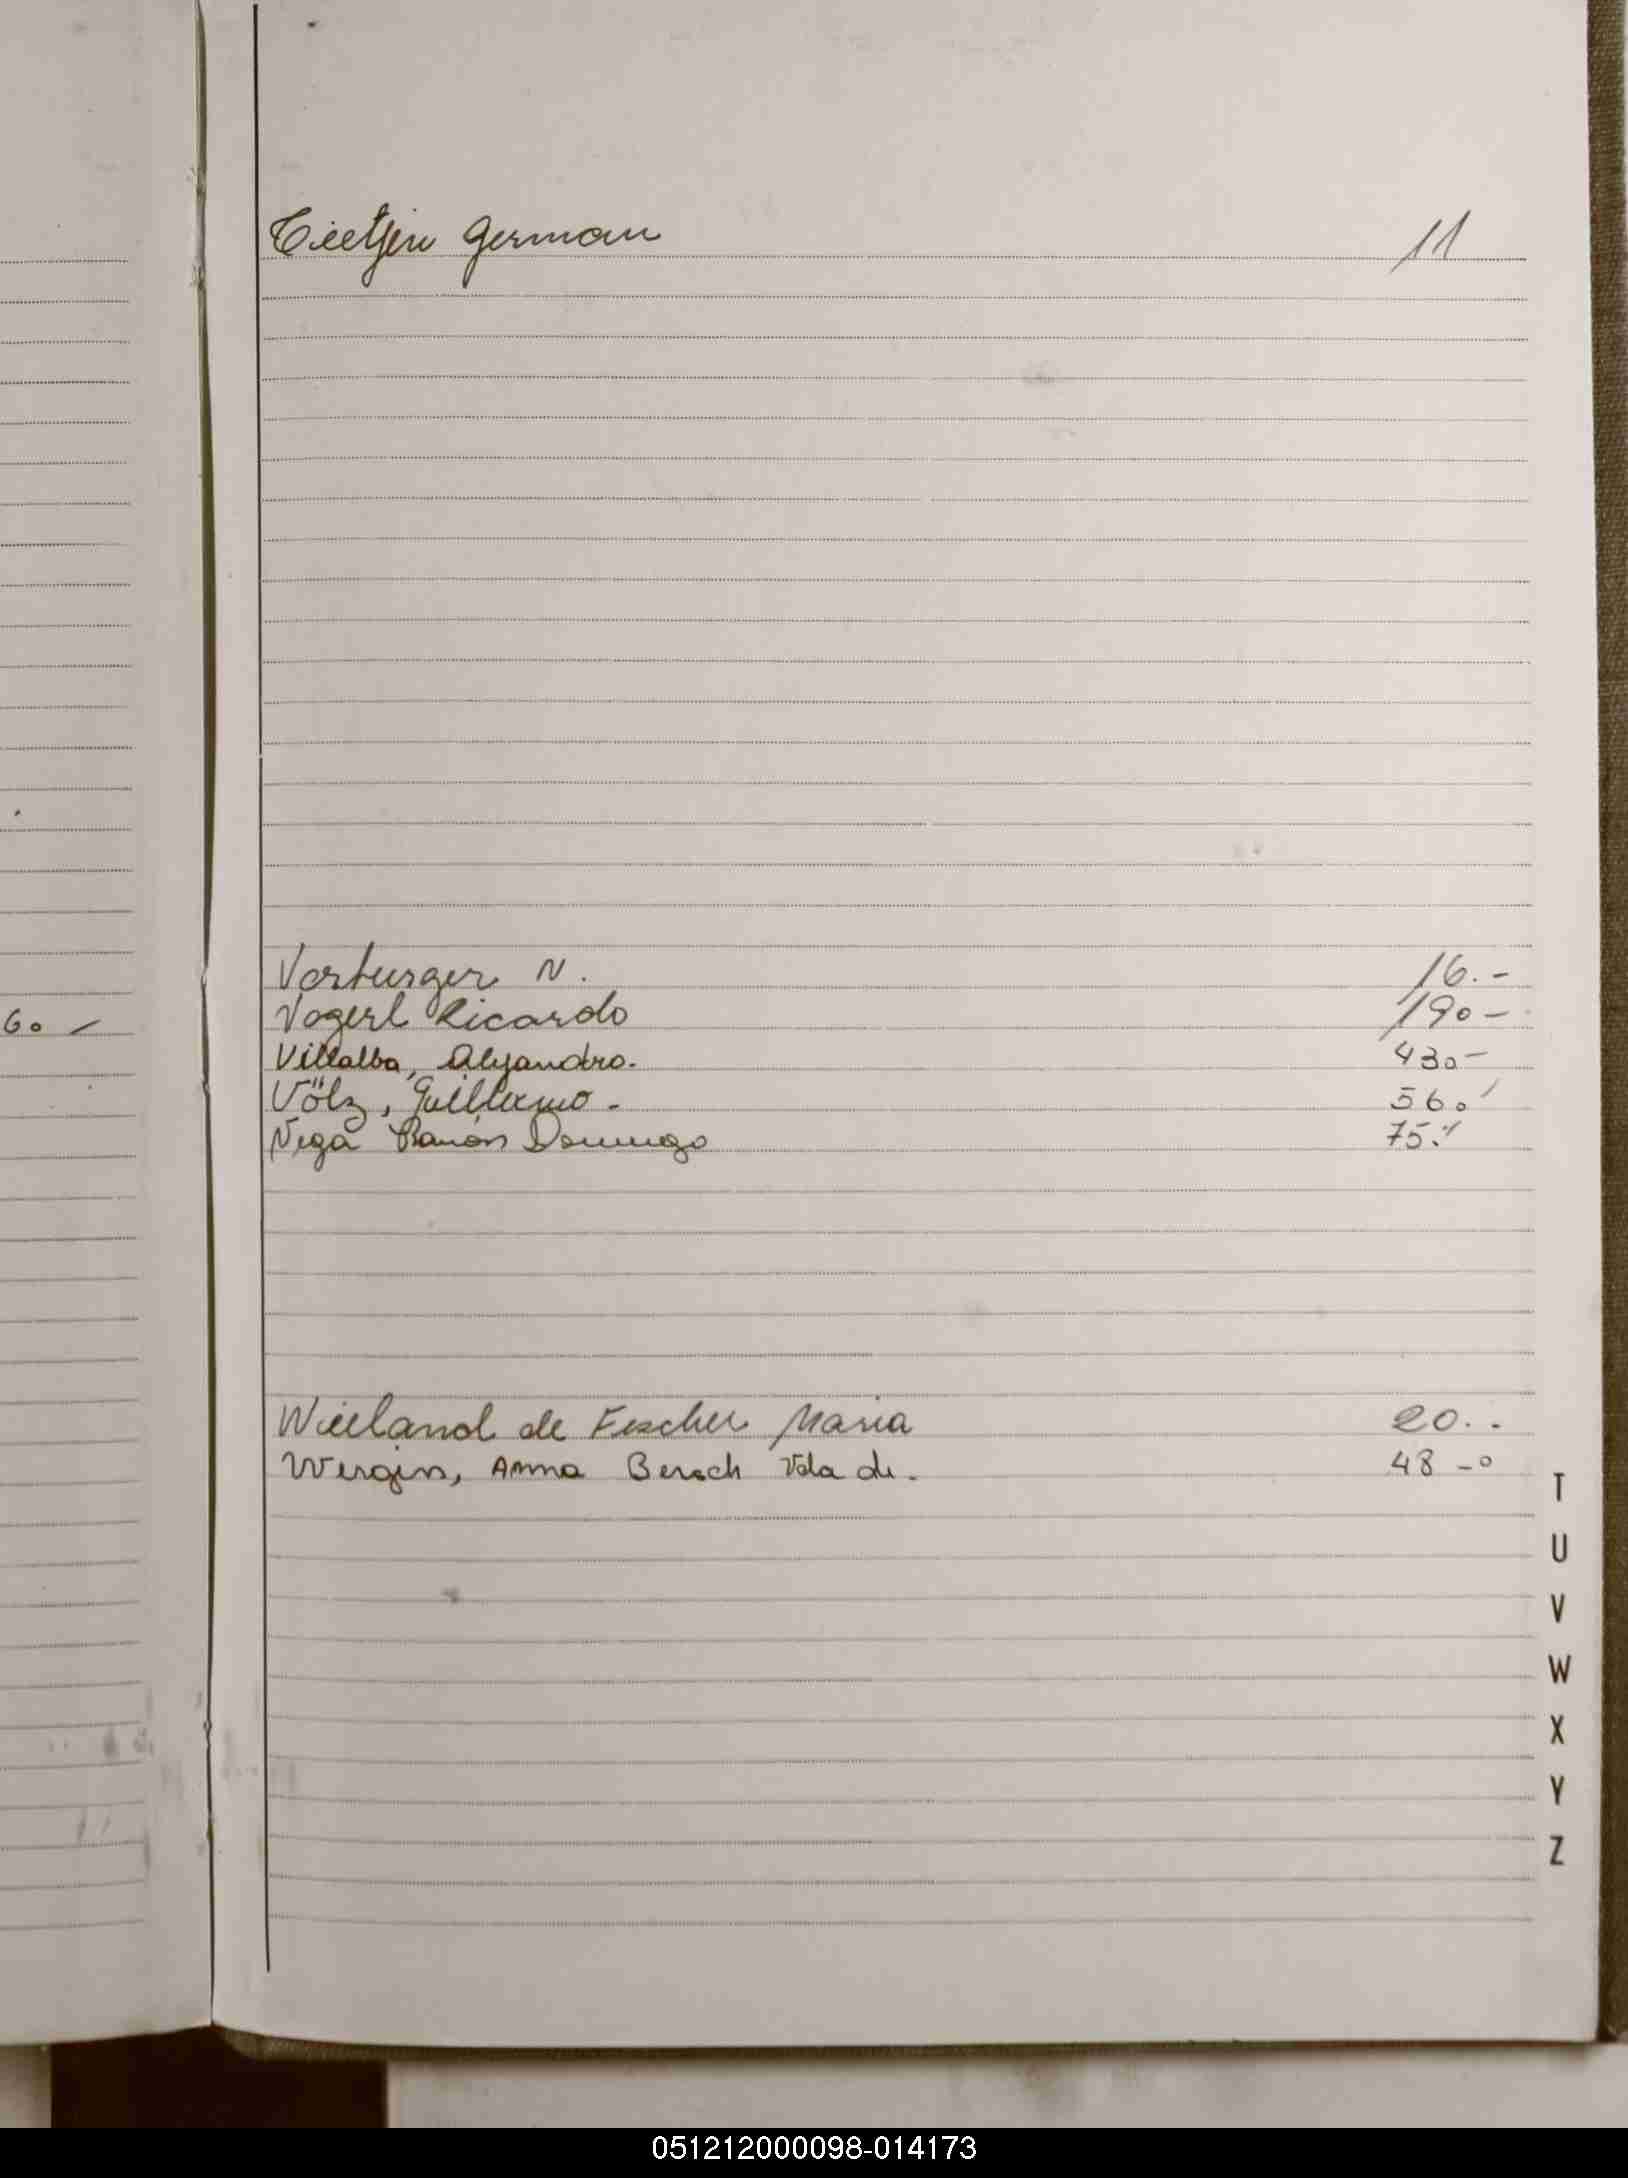 Tietjen German 11
Vorburger N. 16.-
60 -
Vogerl Ricardo 190-
Villalba, Alejandro. 430-
Völz, Guillermo. 560
Vega Ramón Domingo 75.
Wieland de Fischer Maria 20..
Wergin, Anna Bersch Vda de. 48 -
T
U
V
W
X
Y
Z
051212000098-014173